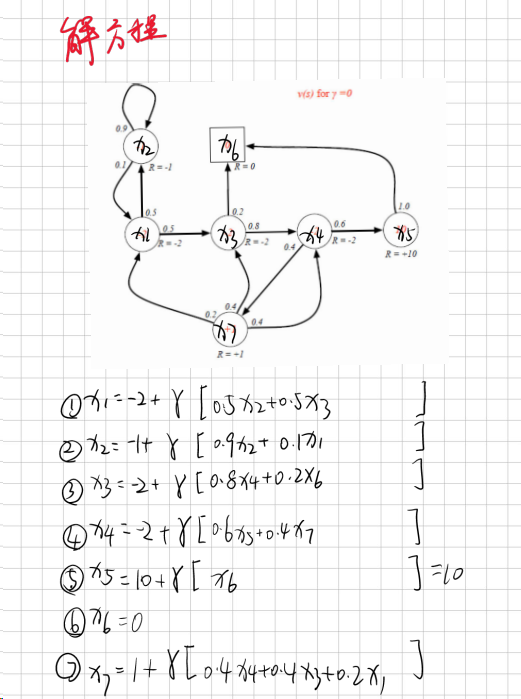 解方程
v(s) for γ =0
0.9
x2
0.1
R = -1
x6
R = 0
0.5
x1
0.5
R = -2
0.2
x3
0.8
R = -2
x4
0.6
R = -2
0.4
1.0
x5
R = +10
0.2
0.4
x7
0.4
R = +1
① x1 = -2 + γ [ 0.5x2+0.5x3 ]
② x2 = -1 + γ [ 0.9x2 + 0.1x1 ]
③ x3 = -2 + γ [ 0.8x4+0.2x6 ]
④ x4 = -2 + γ [ 0.6x5+0.4x7 ]
⑤ x5 = 10 + γ [ x6 ] = 10
⑥ x6 = 0
⑦ x7 = 1 + γ [ 0.4x4+0.4x3+0.2x1 ]